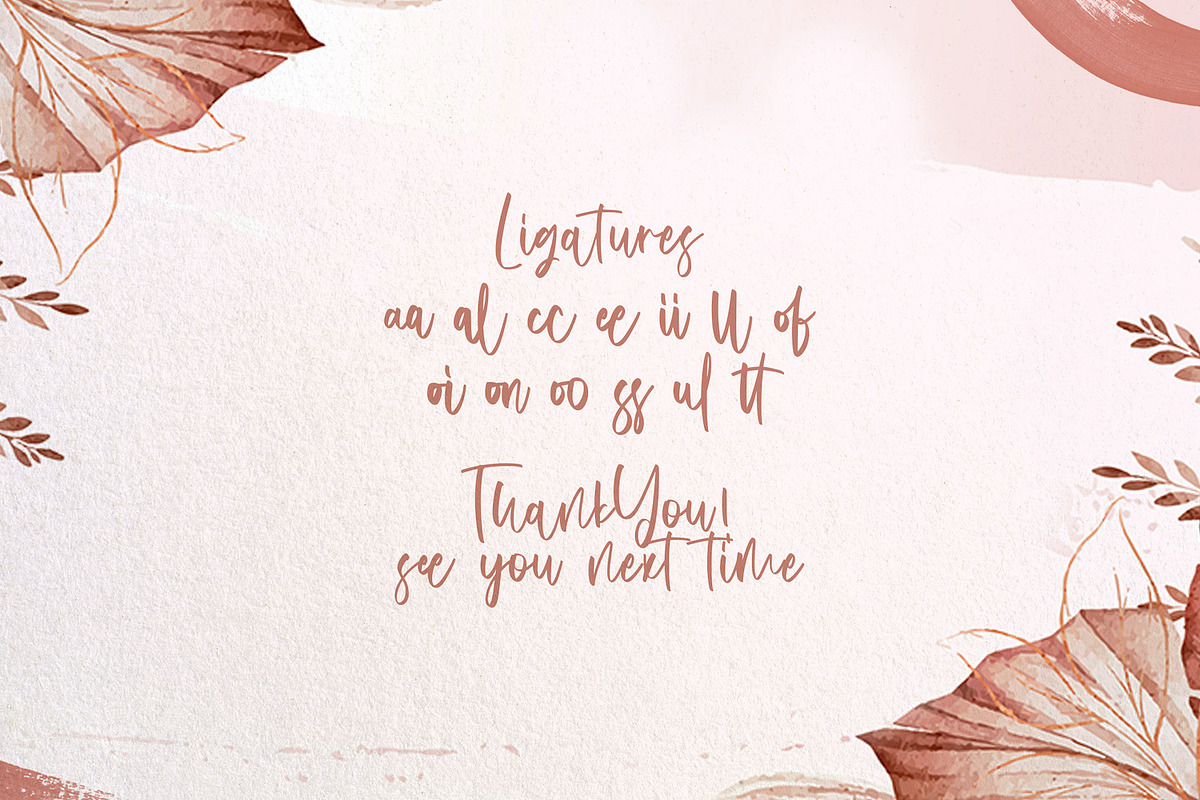 Ligatures
aa al cc ee ii ll of
oi on oo ss ul tt
ThankYou!
see you next time